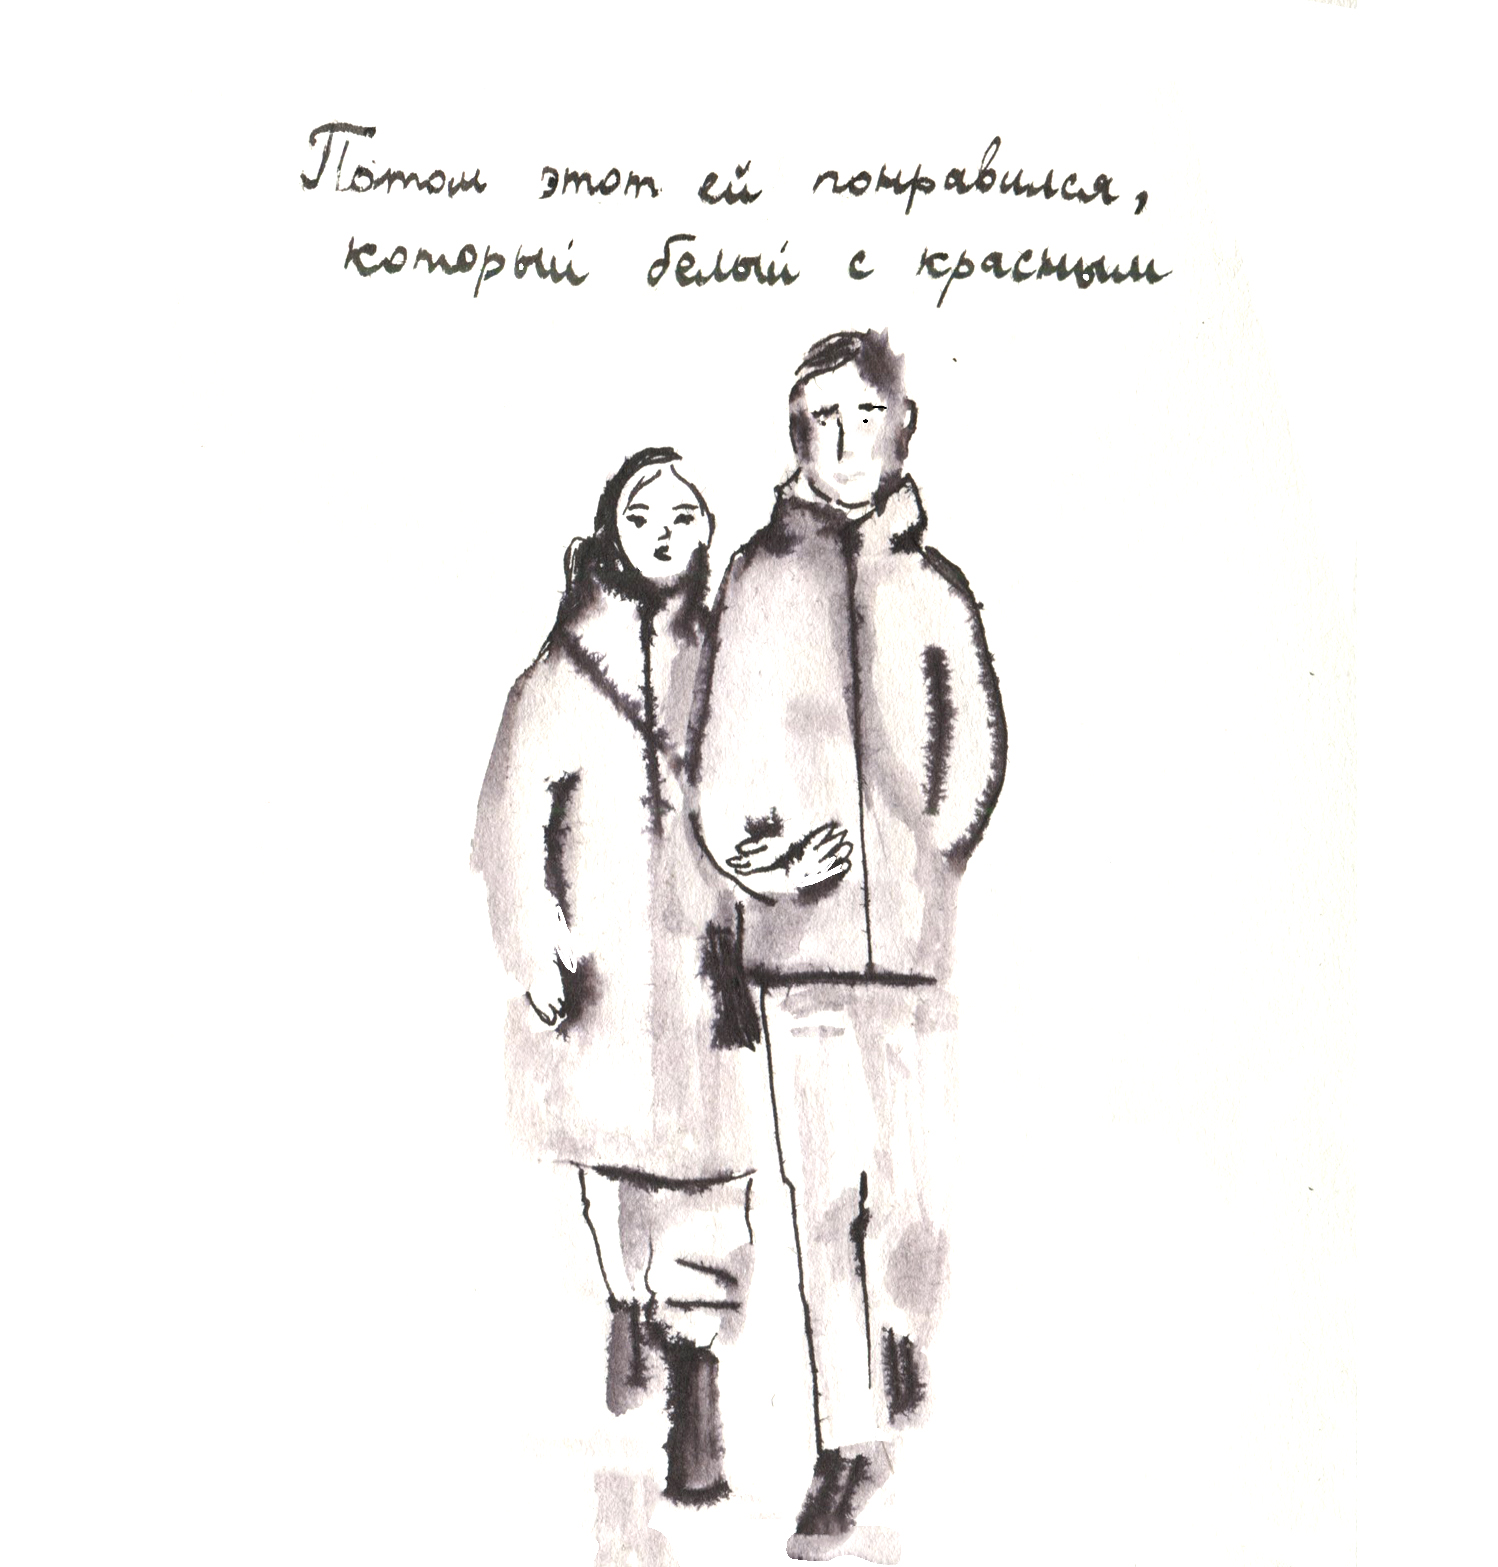 Потом этот ей понравился,
который белый с красным